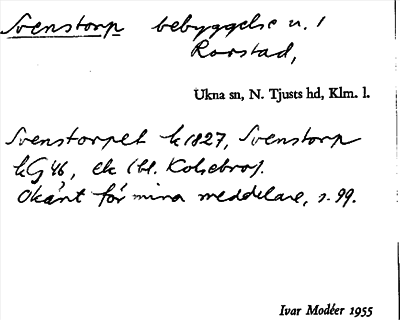 Svenstorp bebyggelse u. /
Rorstad,
Ukna sn, N. Tjusts hd, Klm. l.
Svenstorpet k 1827, Svenstorp
kG 46, ek (bl. Kolsebro).
Okänt för mina meddelare, s. 99.
Ivar Modéer 1955